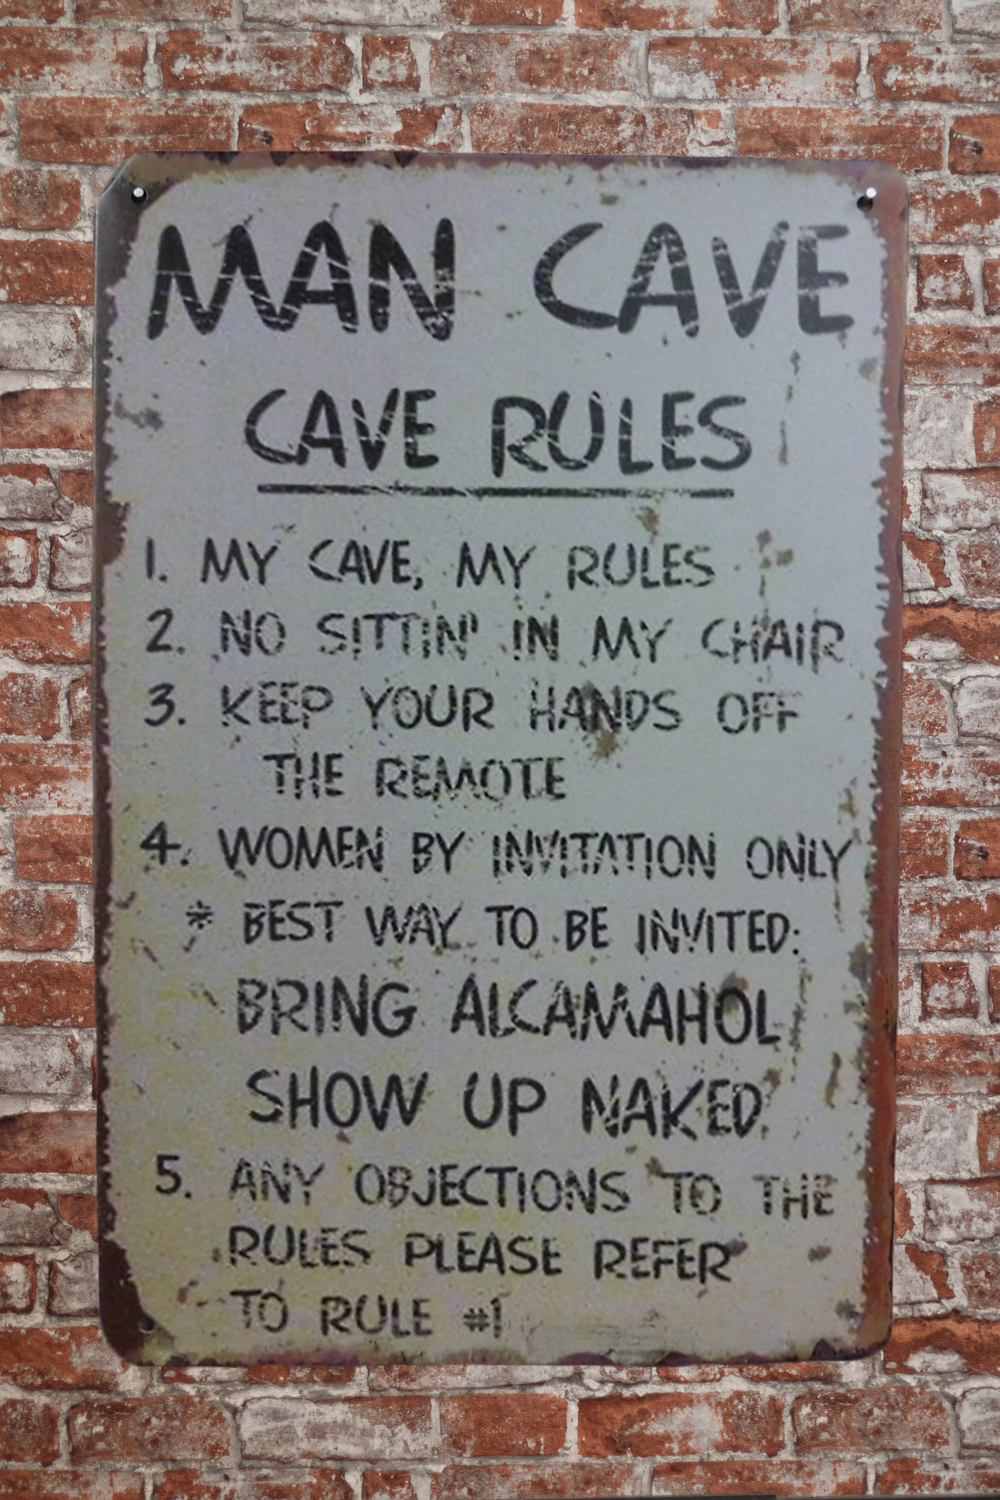 MAN CAVE
CAVE RULES
1. MY CAVE, MY RULES
2. NO SITTIN' IN MY CHAIR
3. KEEP YOUR HANDS OFF
THE REMOTE
4. WOMEN BY INVITATION ONLY
* BEST WAY TO BE INVITED:
BRING ALCAMAHOL
SHOW UP NAKED
5. ANY OBJECTIONS TO THE
RULES PLEASE REFER
TO RULE #1